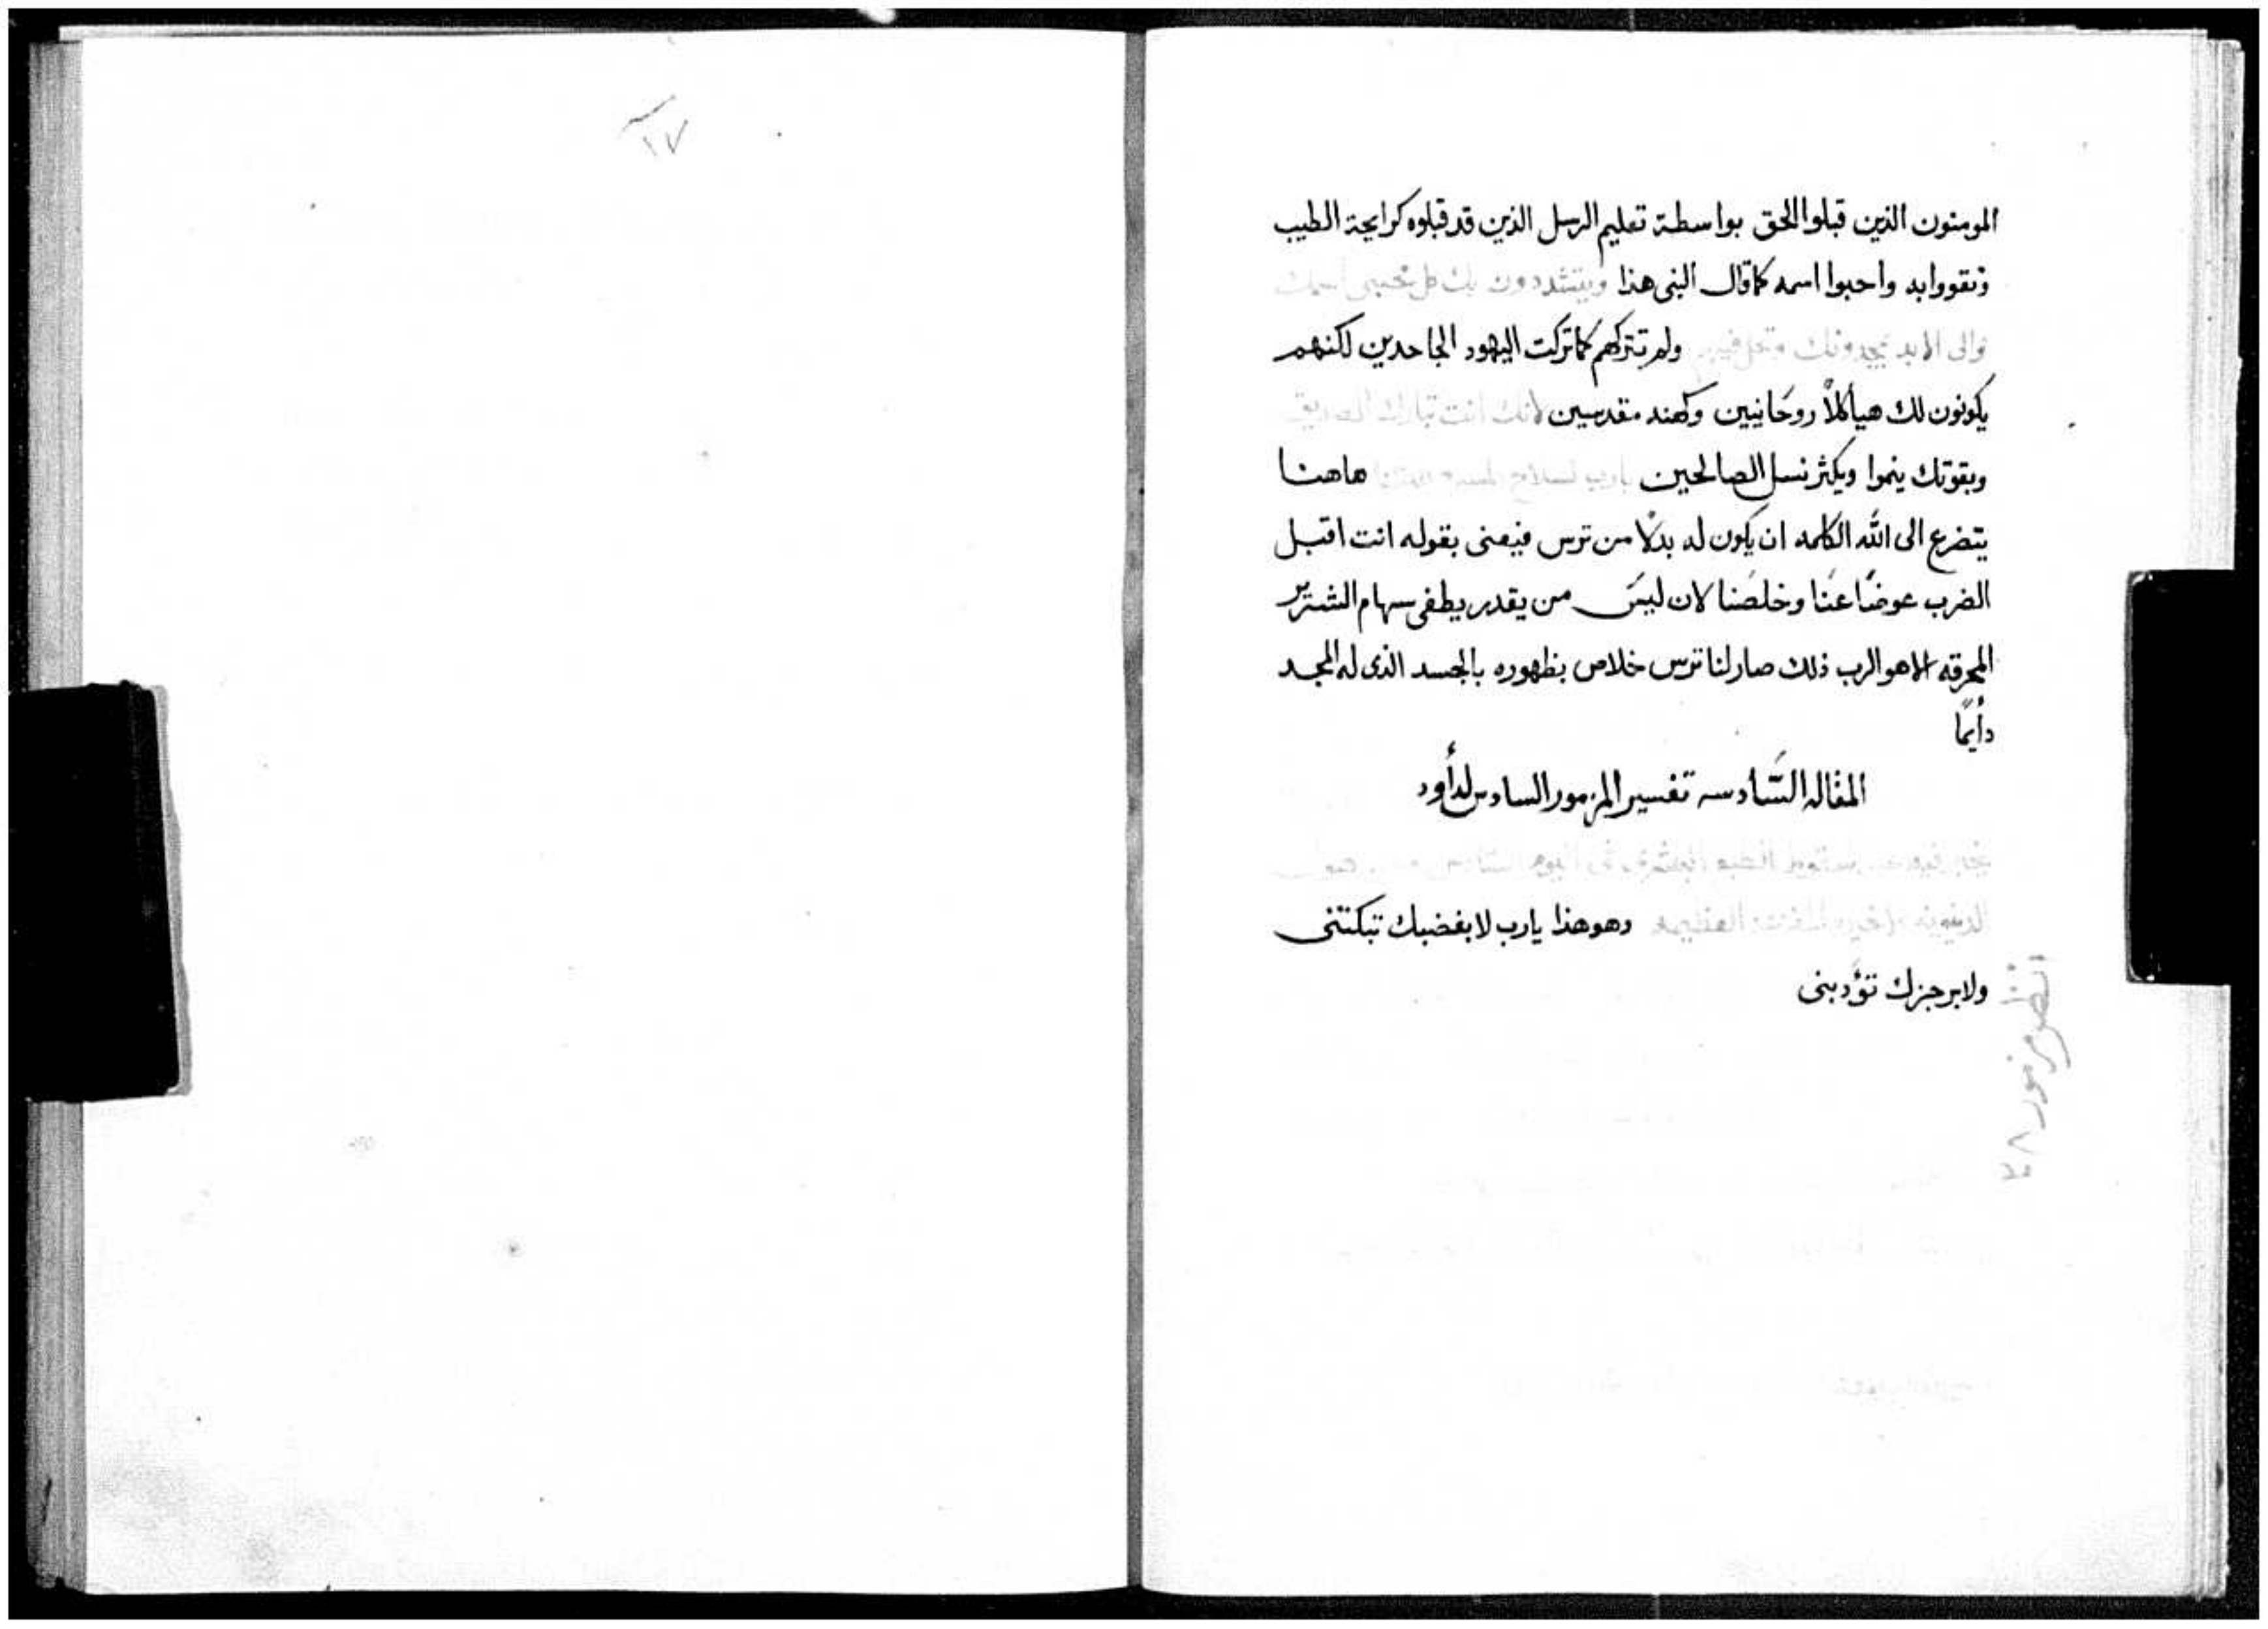 المومنون الذين قبلوا الحق بواسطة تعليم الرسل الذين قد قبلوه كرايحة الطيب
وتقووا به واحبوا اسمه كما قال النبى هذا ويتشددون بك كل محبى اسمك
والى الابد يمجدونك وتحل فيهم ولم تتركهم كما تركت اليهود الجاحدين لكنهم
يكونون لك هيأكلاً روحانيين وكهنه مقدسين لانك انت تبارك الصديق
وبقوتك ينموا ويكثر نسل الصالحين يارب هاهنا
يتضرع الى الله الكلمه ان يكون له بدلاً من ترس فيعنى بقوله انت اقبل
الضرب عوضاً عنا وخلصنا لان ليس من يقدر يطفى سهام الشرير
المحرقه الا هو الرب ذلك صار لنا ترس خلاص بظهوره بالجسد الذى له المجد
دأيماً
المقاله السادسه تفسير المزمور السادس لداود
وهو هذا يارب لا بغضبك تبكتنى
ولا برجزك تؤدبنى
انظر مزمور ٣٨
١٧